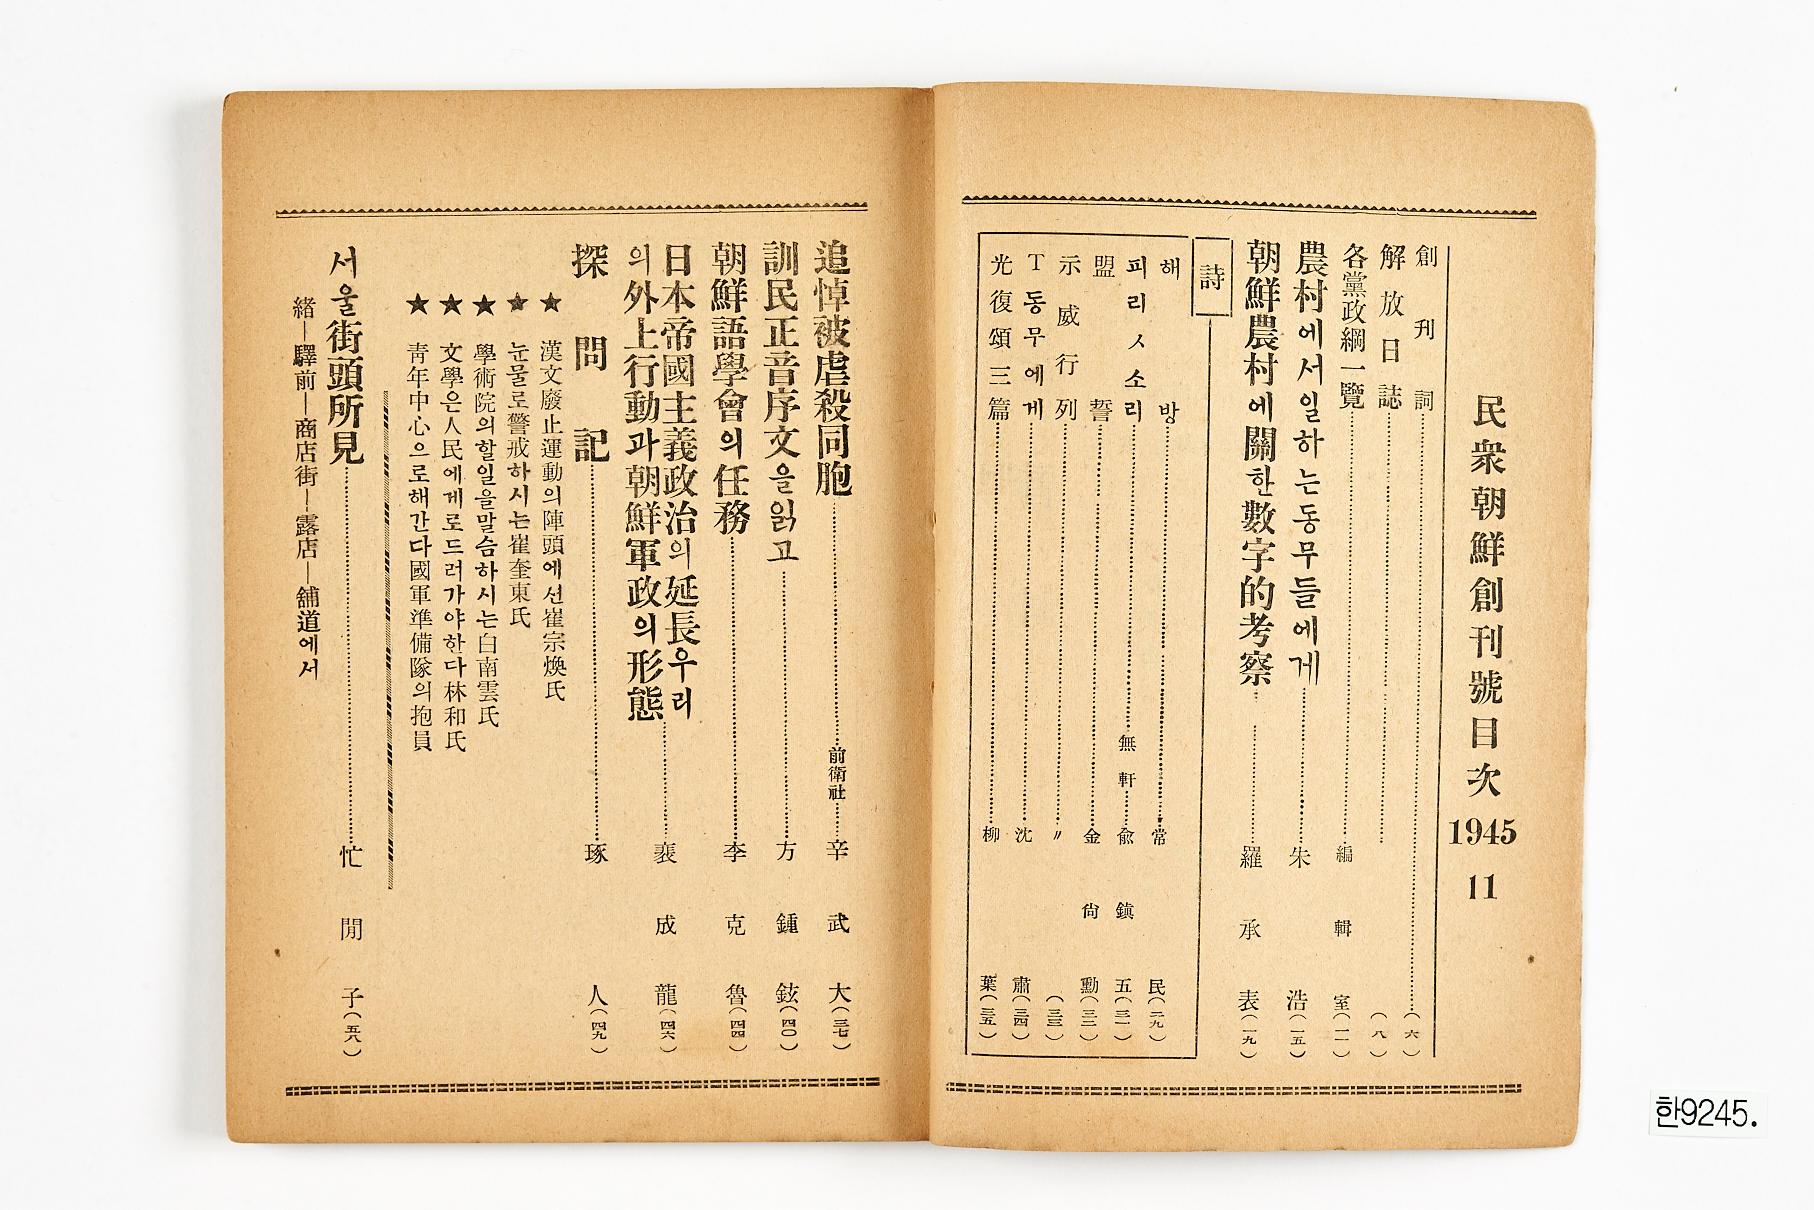 民衆朝鮮創刊號目次 1945 11
創刊詞 (六)
解放日誌 (八)
各黨政綱一覽 編輯室 (一一)
農村에서일하는동무들에게 朱浩 (一五)
朝鮮農村에關한數字的考察 羅承表 (一九)
詩
해방 常民 (二九)
피리ㅅ소리 無軒 兪鎭五 (三一)
盟誓 金尙勳 (三二)
示威行列 〃 (三三)
T동무에게 沈肅 (三四)
光復頌三篇 柳葉 (三五)
追悼被虐殺同胞 前衛社 辛武大 (三七)
訓民正音序文을읽고 方鍾鉉 (四〇)
朝鮮語學會의任務 李克魯 (四四)
日本帝國主義政治의延長우리
의外上行動과朝鮮軍政의形態 裵成龍 (四六)
探問記 琢人 (四九)
★ 漢文廢止運動의陣頭에선崔宗煥氏
★ 눈물로警戒하시는崔奎東氏
★ 學術院의할일을말슴하시는白南雲氏
★ 文學은人民에게로드러가야한다林和氏
★ 靑年中心으로해간다國軍準備隊의抱員
서울街頭所見 忙閒子 (五八)
緖—驛前—商店街—露店—舖道에서
한9245.